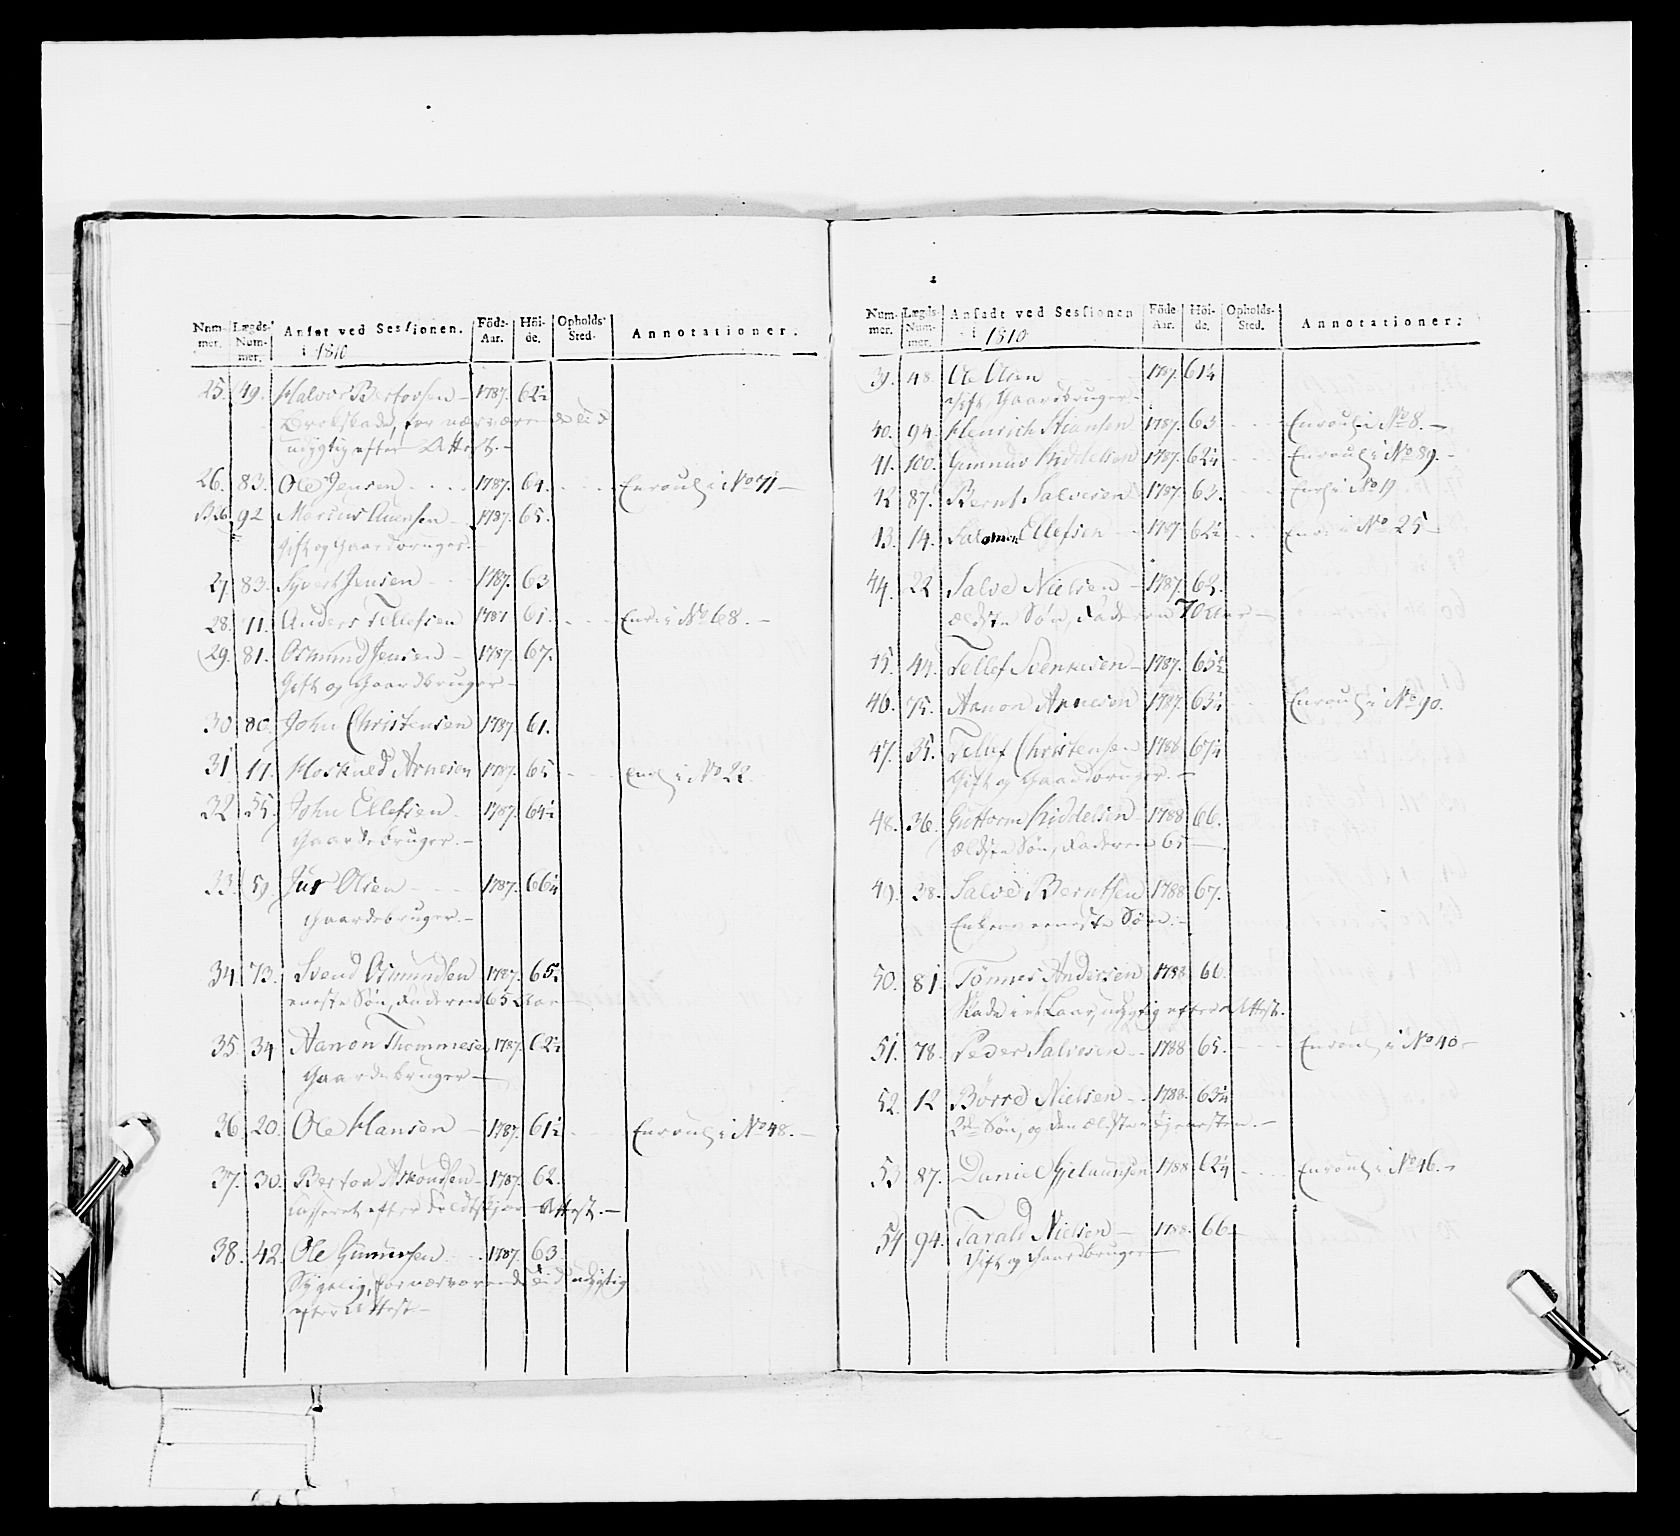 Num- Lægds- Ansat ved Sessionen. Föde- Höi- Opholds- Annotationer.
mer. Num- i 1810 Aar. de. Sted.
mer.
25. 49. Halvor Bertovsen 1787. 62½
Brokskade, for nærværende Tid
udygtig efter Attest.
26. 83. Ole Jensen 1787. 64. Enroul. i No 71
92 Marcus 1787. 65.
Gift og Gaardbruger.
27. 83. Syvert Jensen 1787. 63
28. 11. Anders Tellefsen 1787 61. Enr. i No 68.
29. 81. Osmund Jensen 1787. 67.
Gift og Gaardbruger
30 80. John Christensen 1787 61.
31 11. Arnesen 1787. 65 Enrl. i No 22
32 55. John Ellefsen 1787. 64½
Gaardebruger.
33. 59 Olsen 1787. 66¼
Gaardebruger.
34 73. Svend Osmundsen 1787. 65½
eneste Søn, Faderen 65 Aar
35. 34 Aanon Thommesen 1787. 62½
Gaardebruger
36. 20. Ole Hansen 1787. 61½ Enroul. i No 48.
37. 30. Berton 1787. 62.
Casseret efter Feldtskjær Attest.
38. 42. Ole Gunnersen 1787. 63.
Sygelig, for nærværende Tid udygtig
efter Attest
Num- Lægds- Ansadt ved Sessionen Föde Höi- Opholds- Annotationer:
mer. Num- i 1810 Aar. de. Sted.
mer.
39. 48 Ole Olsen 1787. 61¼
Gift, Gaardbruger
40. 94 Henrich Stiansen 1787. 63. Enroul. i No 8.
41. 100. Gunnuv Kiddelsen 1787. 62¼ Enroul. i No 89.
42 87. Bernt Salvesen 1787. 63.
43. 14. Salomon Ellefsen 1787 62½ Enr. i No 25
44. 22 Salve Nielsen 1787. 62.
ældste Søn, Faderen 70 Aar
45. 44. Tellef Svennesen 1787. 65½
46. 75. Aanon Arnesen 1787. 63½ Enroul. i No 90.
47. 35. Tellef Christensen 1788 67¼
Gift og Gaardbruger.
48. 36. Guttorm Kiddelsen 1788 66.
ældste Søn, Faderen 65
49. 38. Salve Berntsen 1788 67.
Enkens eeneste Søn.
50. 81. Tønnes Andersen 1788 60.
Skade i et Laar, udygtig efter Attest.
51. 78. Peder Salvesen 1788 65. Enroul. i No 40
52. 12 Børre Nielsen 1788. 63¼
2den Søn, og den ældste i Tjenesten.
53 87. Daniel 1788. 62¼ Enroul. i No 46.
54 94. Tarald Nielsen 1788. 66
Gift og Gaardbruger